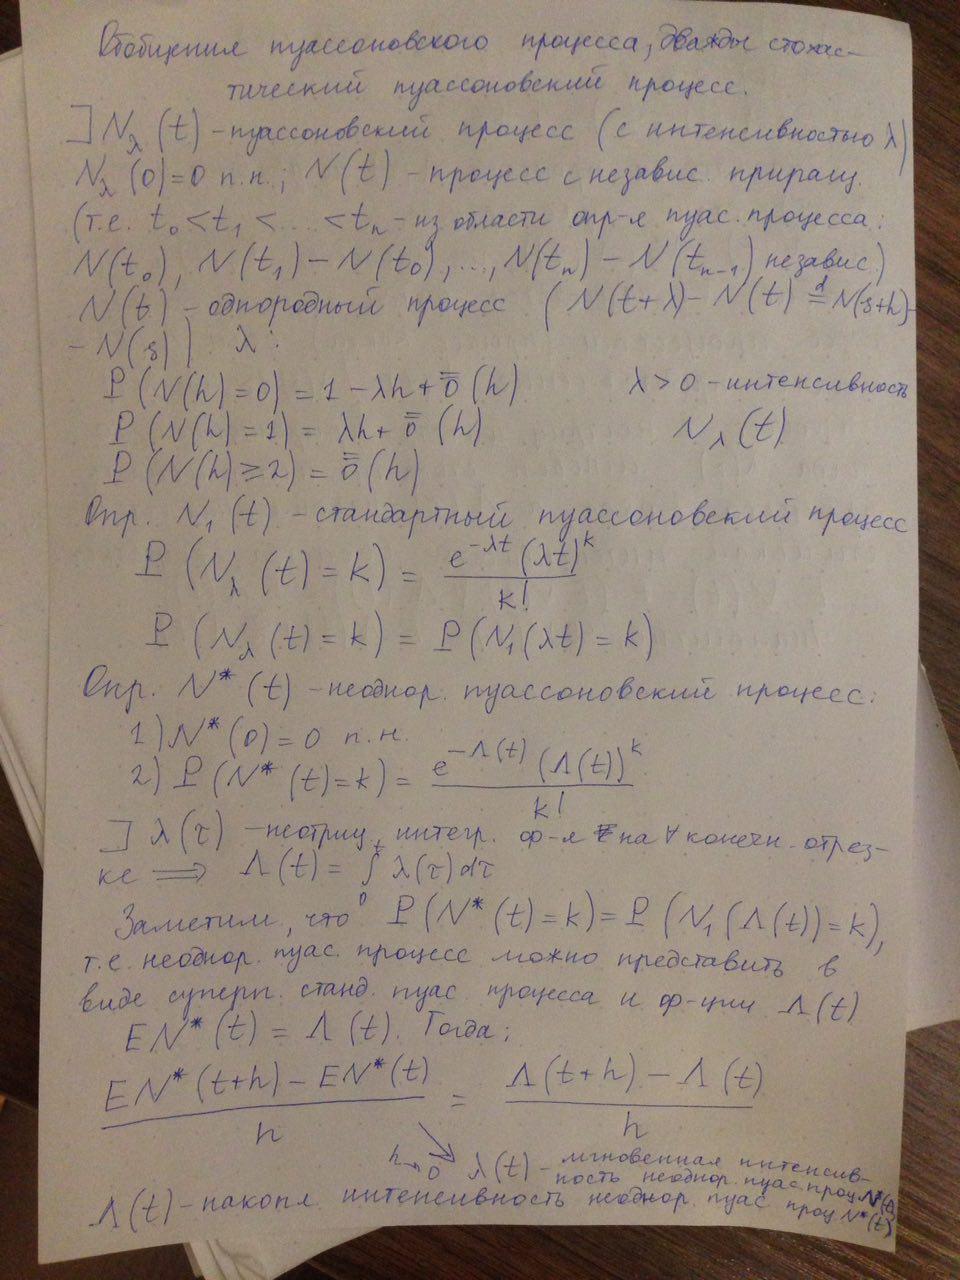 Обобщения пуассоновского процесса, дважды стохас-
тический пуассоновский процесс.
] N_λ(t) - пуассоновский процесс (с интенсивностью λ)
N_λ(0)=0 п.н.; N(t) - процесс с независ. приращ.
(т.е. t₀ < t₁ < ... < tₙ - из области опр-я пуас. процесса:
N(t₀), N(t₁) - N(t₀), ..., N(tₙ) - N(tₙ₋₁) независ.)
N(t) - однородный процесс (N(t+λ) - N(t) =^d N(s+h) -
- N(s)) λ:
P(N(h)=0) = 1 - λh + o̿(h) λ > 0 - интенсивность
P(N(h)=1) = λh + o̿(h) N_λ(t)
P(N(h)≥2) = o̿(h)
Опр. N₁(t) - стандартный пуассоновский процесс
P(N_λ(t) = k) = e^{-λt}(λt)^k / k!
P(N_λ(t) = k) = P(N₁(λt) = k)
Опр. N*(t) - неоднор. пуассоновский процесс:
1) N*(0) = 0 п.н.
2) P(N*(t)=k) = e^{-Λ(t)}(Λ(t))^k / k!
] λ(τ) - неотриц. интегр. ф-я на ∀ конечн. отрез-
ке ⟹ Λ(t) = ∫₀^t λ(τ)dτ
Заметим, что P(N*(t)=k) = P(N₁(Λ(t))=k),
т.е. неоднор. пуас. процесс можно представить в
виде суперп. станд. пуас. процесса и ф-ции Λ(t)
EN*(t) = Λ(t). Тогда:
(EN*(t+h) - EN*(t)) / h = (Λ(t+h) - Λ(t)) / h
h→0 ↘ λ(t) - мгновенная интенсив-
ность неоднор. пуас. проц. N*(t)
Λ(t) - накопл. интенсивность неоднор. пуас. проц. N*(t)